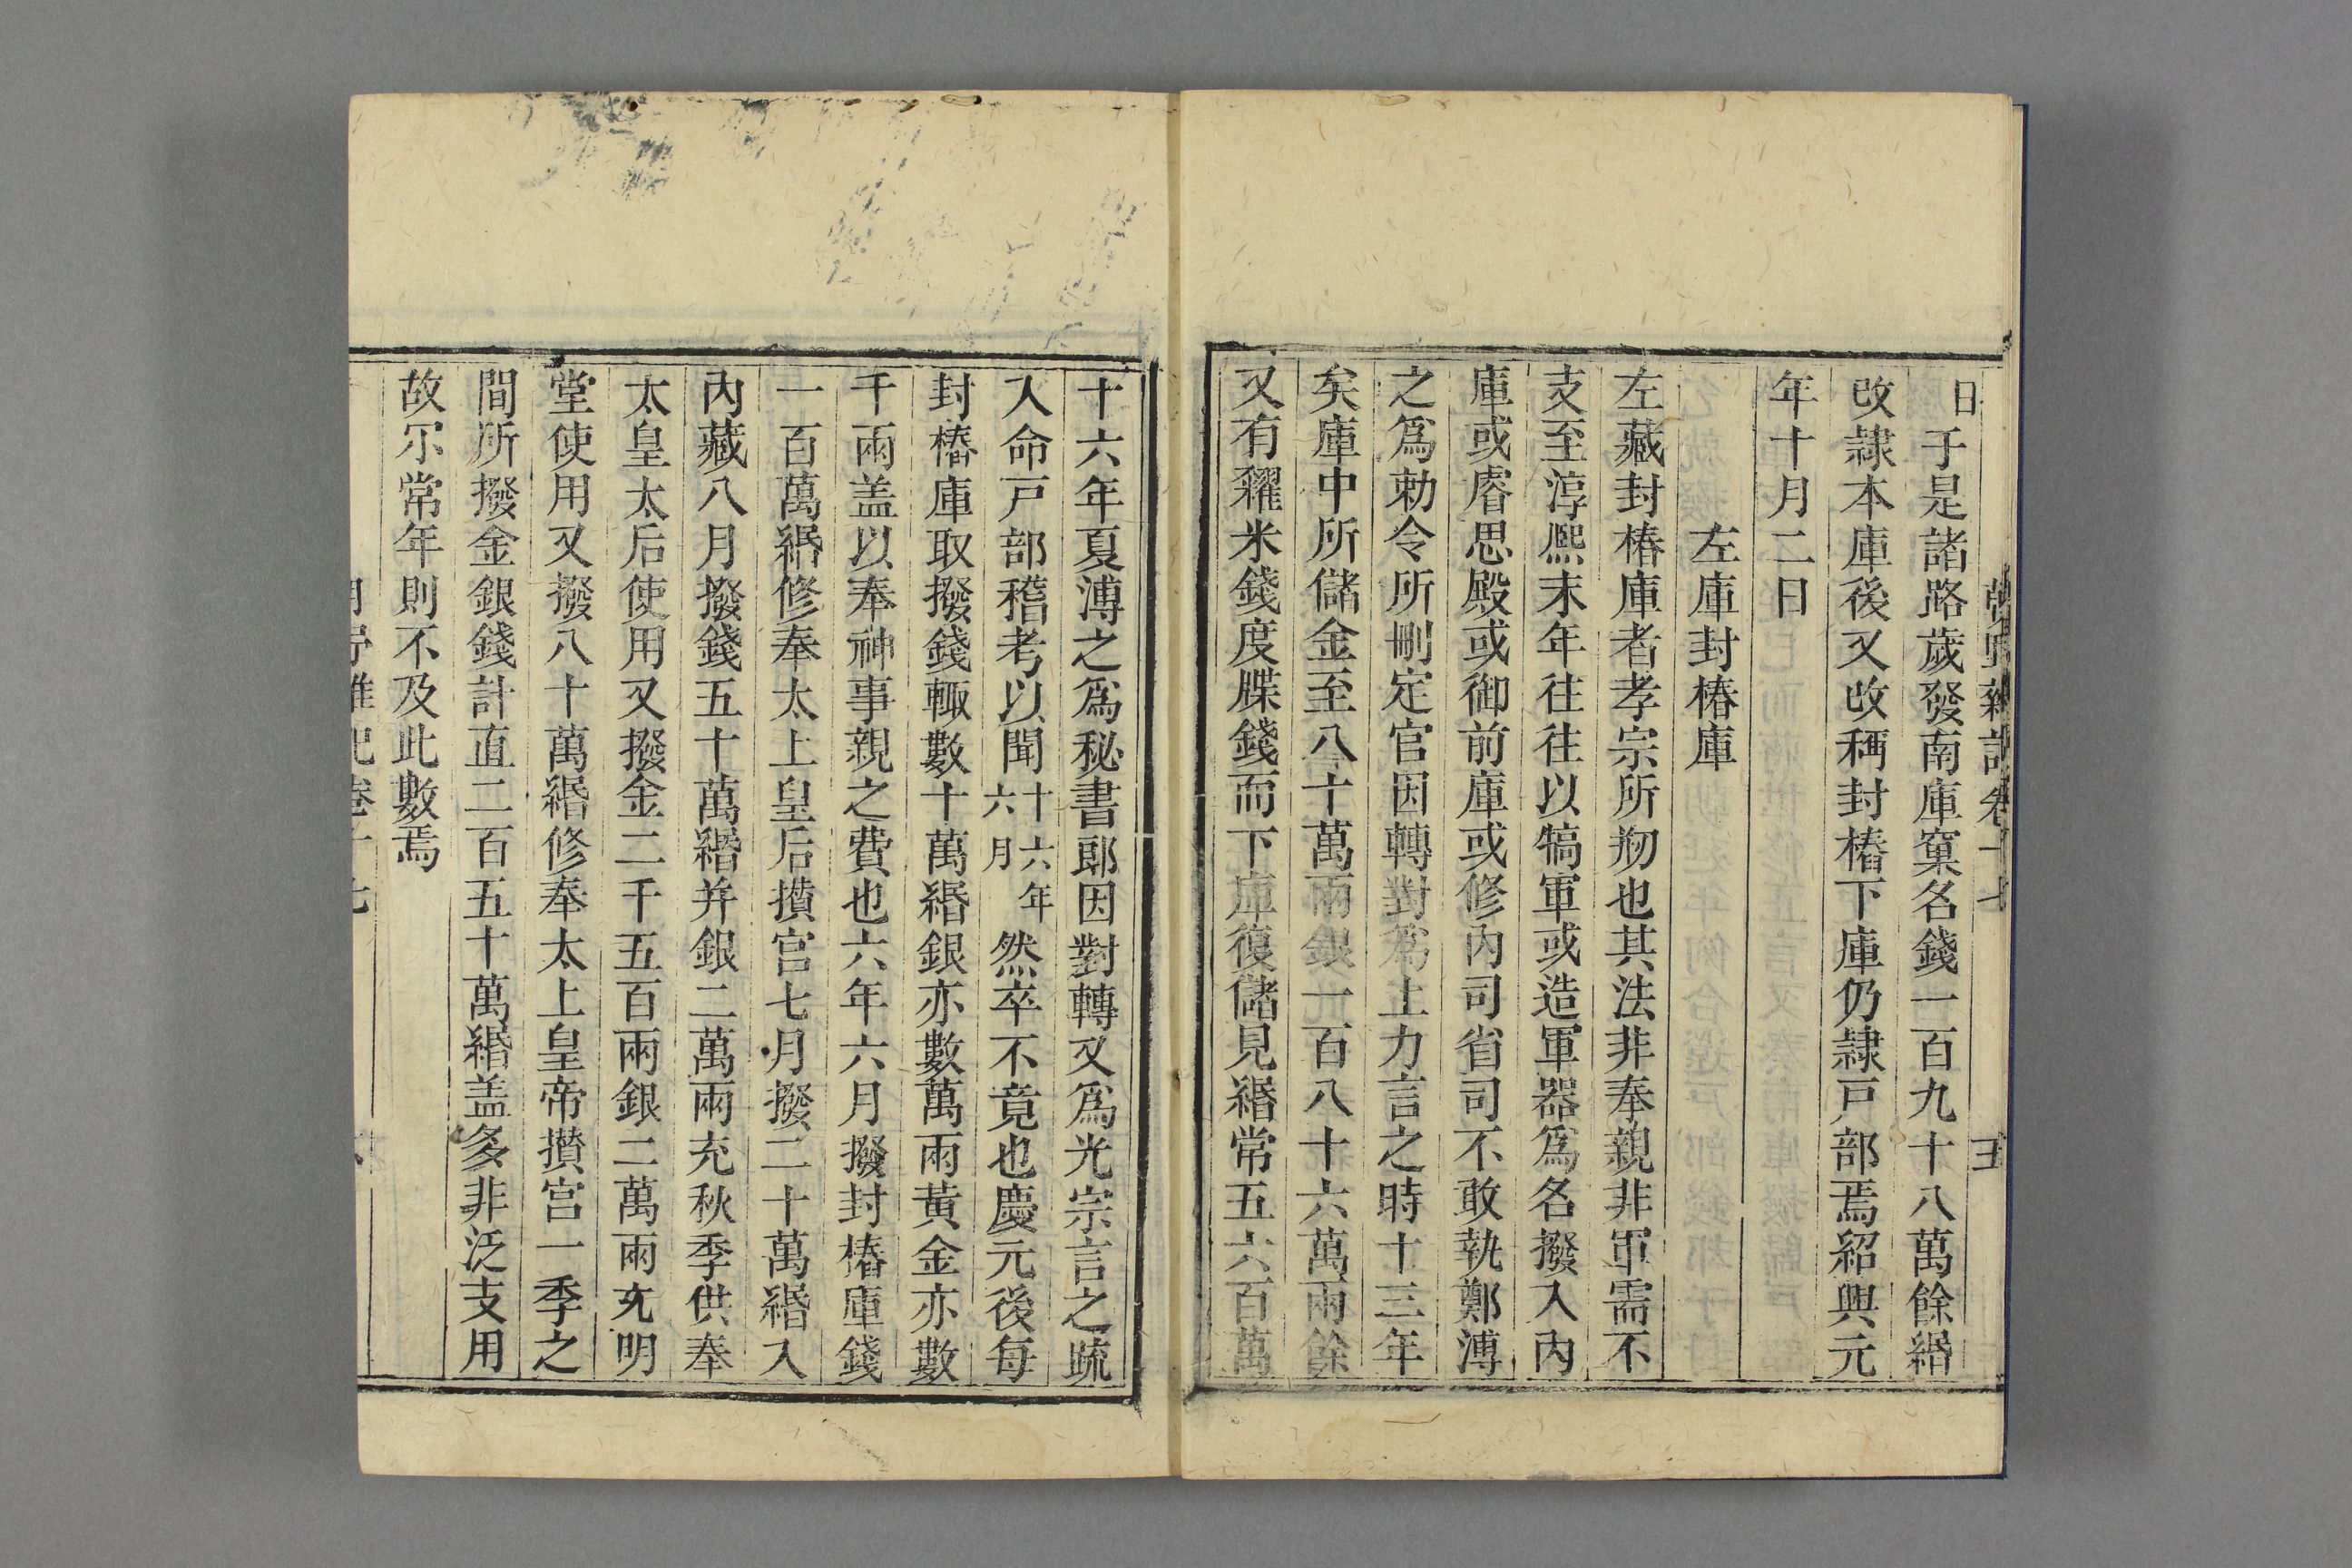 朝野雜記卷十七 五
日于是諸路歲發南庫窠名錢一百九十八萬餘緡
改隸本庫後又改稱封樁下庫仍隸戸部焉紹興元
年十月二日
左庫封樁庫
左藏封樁庫者孝宗所剏也其法非奉親非軍需不
支至淳熙末年往往以犒軍或造軍器爲名撥入內
庫或睿思殿或御前庫或修內司省司不敢執鄭溥
之爲勅令所刪定官因轉對爲上力言之時十三年
矣庫中所儲金至八十萬兩銀一百八十六萬兩餘
又有糴米錢度牒錢而下庫復儲見緡常五六百萬
十六年夏溥之爲秘書郎因對轉又爲光宗言之疏
入命戸部稽考以聞十六年六月然卒不竟也慶元後每
封樁庫取撥錢輙數十萬緡銀亦數萬兩黃金亦數
千兩盖以奉神事親之費也六年六月撥封樁庫錢
一百萬緡修奉太上皇后攅宫七月撥二十萬緡入
內藏八月撥錢五十萬緡并銀二萬兩充秋季供奉
太皇太后使用又撥金二千五百兩銀二萬兩充明
堂使用又撥八十萬緡修奉太上皇帝攅宫一季之
間所撥金銀錢計直二百五十萬緡盖多非泛支用
故尓常年則不及此數焉